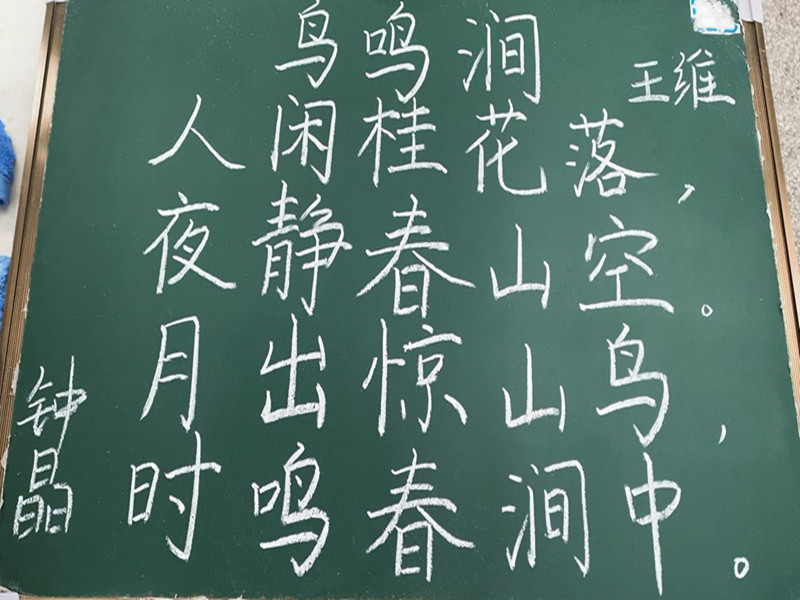 鸟鸣涧
王维
人闲桂花落，
夜静春山空。
月出惊山鸟，
时鸣春涧中。
钟晶